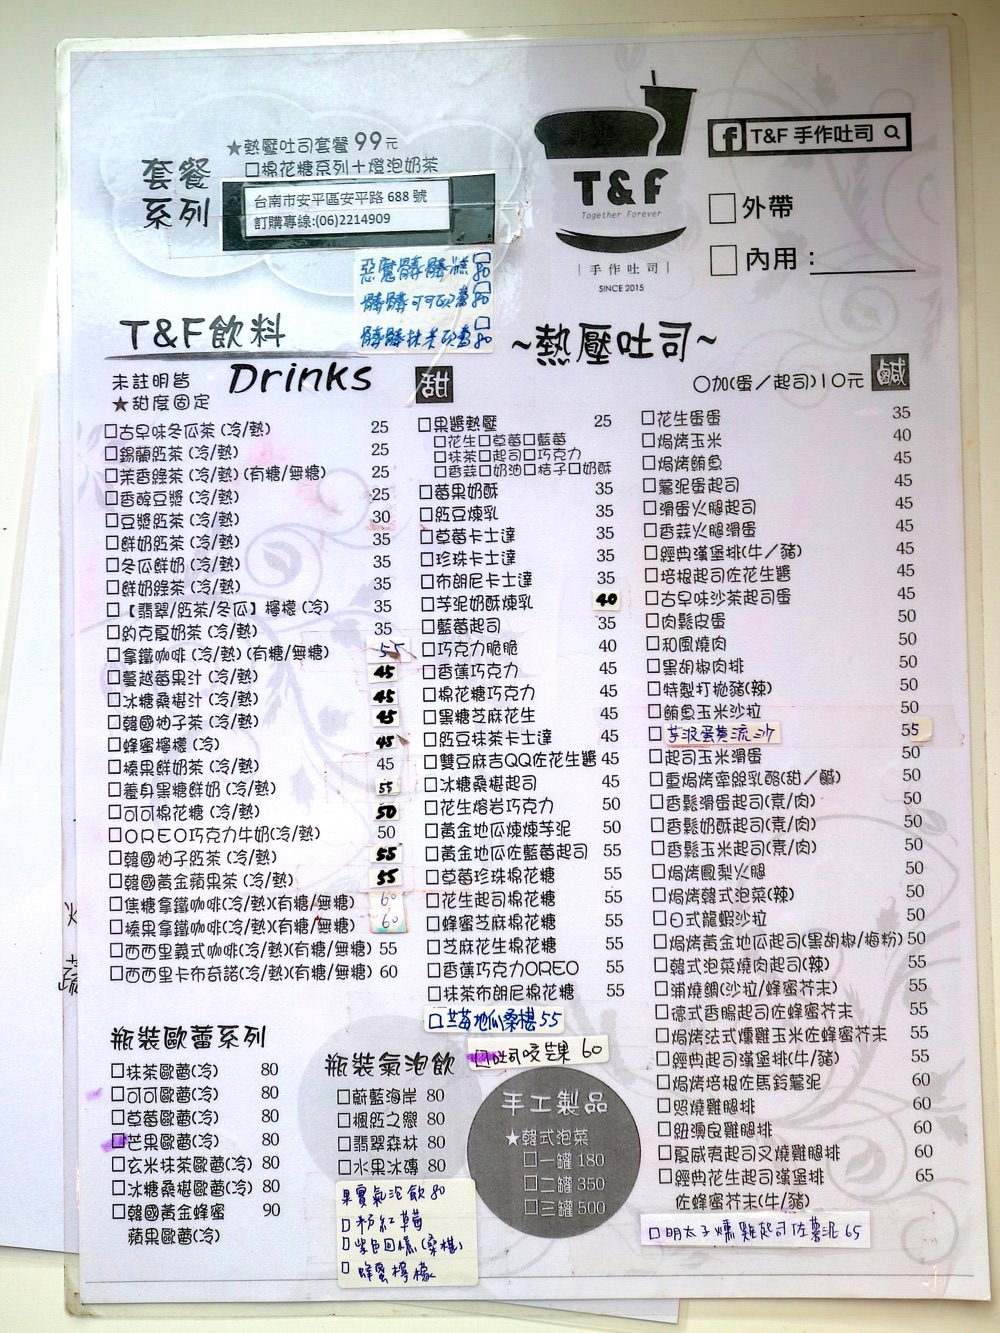 套餐
系列
★熱壓吐司套餐 99元
□棉花糖系列+燈泡奶茶
台南市安平區安平路 688 號
訂購專線:(06)2214909
惡魔髒髒
□80
髒髒可可
□80
髒髒抹茶
□80
T&F
Together Forever
|手作吐司|
SINCE 2015
f T&F 手作吐司
□外帶
□內用:
T&F飲料
Drinks
未註明皆
★甜度固定
□古早味冬瓜茶(冷/熱) 25
□錫蘭紅茶(冷/熱) 25
□茉香綠茶(冷/熱)(有糖/無糖) 25
□香醇豆漿(冷/熱) 25
□豆漿紅茶(冷/熱) 30
□鮮奶紅茶(冷/熱) 35
□冬瓜鮮奶(冷/熱) 35
□鮮奶綠茶(冷/熱) 35
□【翡翠/紅茶/冬瓜】檸檬(冷) 35
□約克夏奶茶(冷/熱) 35
□拿鐵咖啡(冷/熱)(有糖/無糖) 55
□蔓越莓果汁(冷/熱) 45
□冰糖桑椹汁(冷/熱) 45
□韓國柚子茶(冷/熱) 45
□蜂蜜檸檬(冷) 45
□榛果鮮奶茶(冷/熱) 45
□養身黑糖鮮奶(冷/熱) 55
□可可棉花糖(冷/熱) 50
□OREO巧克力牛奶(冷/熱) 50
□韓國柚子紅茶(冷/熱) 55
□韓國黃金蘋果茶(冷/熱) 55
□焦糖拿鐵咖啡(冷/熱)(有糖/無糖) 60
□榛果拿鐵咖啡(冷/熱)(有糖/無糖) 60
□西西里義式咖啡(冷/熱)(有糖/無糖) 55
□西西里卡布奇諾(冷/熱)(有糖/無糖) 60
瓶裝歐蕾系列
□抹茶歐蕾(冷) 80
□可可歐蕾(冷) 80
□草莓歐蕾(冷) 80
□芒果歐蕾(冷) 80
□玄米抹茶歐蕾(冷) 80
□冰糖桑椹歐蕾(冷) 80
□韓國黃金蜂蜜 90
蘋果歐蕾(冷)
~熱壓吐司~
甜
□果醬熱壓 25
□花生□草莓□藍莓
□抹茶□起司□巧克力
□香蒜□奶油□桔子□奶酥
□莓果奶酥 35
□紅豆煉乳 35
□草莓卡士達 35
□珍珠卡士達 35
□布朗尼卡士達 35
□芋泥奶酥煉乳 40
□藍莓起司 35
□巧克力脆脆 40
□香蕉巧克力 45
□棉花糖巧克力 45
□黑糖芝麻花生 45
□紅豆抹茶卡士達 45
□雙豆麻吉QQ佐花生醬 45
□冰糖桑椹起司 45
□花生熔岩巧克力 50
□黃金地瓜煉煉芋泥 50
□黃金地瓜佐藍莓起司 55
□草莓珍珠棉花糖 55
□花生起司棉花糖 55
□蜂蜜芝麻棉花糖 55
□芝麻花生棉花糖 55
□香蕉巧克力OREO 55
□抹茶布朗尼棉花糖 55
□芋莓地瓜桑椹 55
□吐司咬芒果 60
瓶裝氣泡飲
□蔚藍海岸 80
□楓紅之戀 80
□翡翠森林 80
□水果冰磚 80
果實氣泡飲 80
□粉紅草莓
□紫色回憶(桑椹)
□蜂蜜檸檬
手工製品
★韓式泡菜
□一罐 180
□二罐 350
□三罐 500
○加(蛋/起司)10元
鹹
□花生蛋蛋 35
□焗烤玉米 40
□焗烤鮪魚 45
□薯泥蛋起司 45
□滑蛋火腿起司 45
□香蒜火腿滑蛋 45
□經典漢堡排(牛/豬) 45
□培根起司佐花生醬 45
□古早味沙茶起司蛋 45
□肉鬆皮蛋 50
□和風燒肉 50
□黑胡椒肉排 50
□特製打拋豬(辣) 50
□鮪魚玉米沙拉 50
□芋泥蛋黃流沙 55
□起司玉米滑蛋 50
□重焗烤牽絲乳酪(甜/鹹) 50
□香鬆滑蛋起司(素/肉) 50
□香鬆奶酥起司(素/肉) 50
□香鬆玉米起司(素/肉) 50
□焗烤鳳梨火腿 50
□焗烤韓式泡菜(辣) 50
□日式龍蝦沙拉 50
□焗烤黃金地瓜起司(黑胡椒/梅粉) 50
□韓式泡菜燒肉起司(辣) 55
□浦燒鯛(沙拉/蜂蜜芥末) 55
□德式香腸起司佐蜂蜜芥末 55
□焗烤法式燻雞玉米佐蜂蜜芥末 55
□經典起司漢堡排(牛/豬) 55
□焗烤培根佐馬鈴薯泥 60
□照燒雞腿排 60
□紐澳良雞腿排 60
□夏威夷起司叉燒雞腿排 60
□經典花生起司漢堡排 65
佐蜂蜜芥末(牛/豬)
□明太子燻雞起司佐薯泥 65